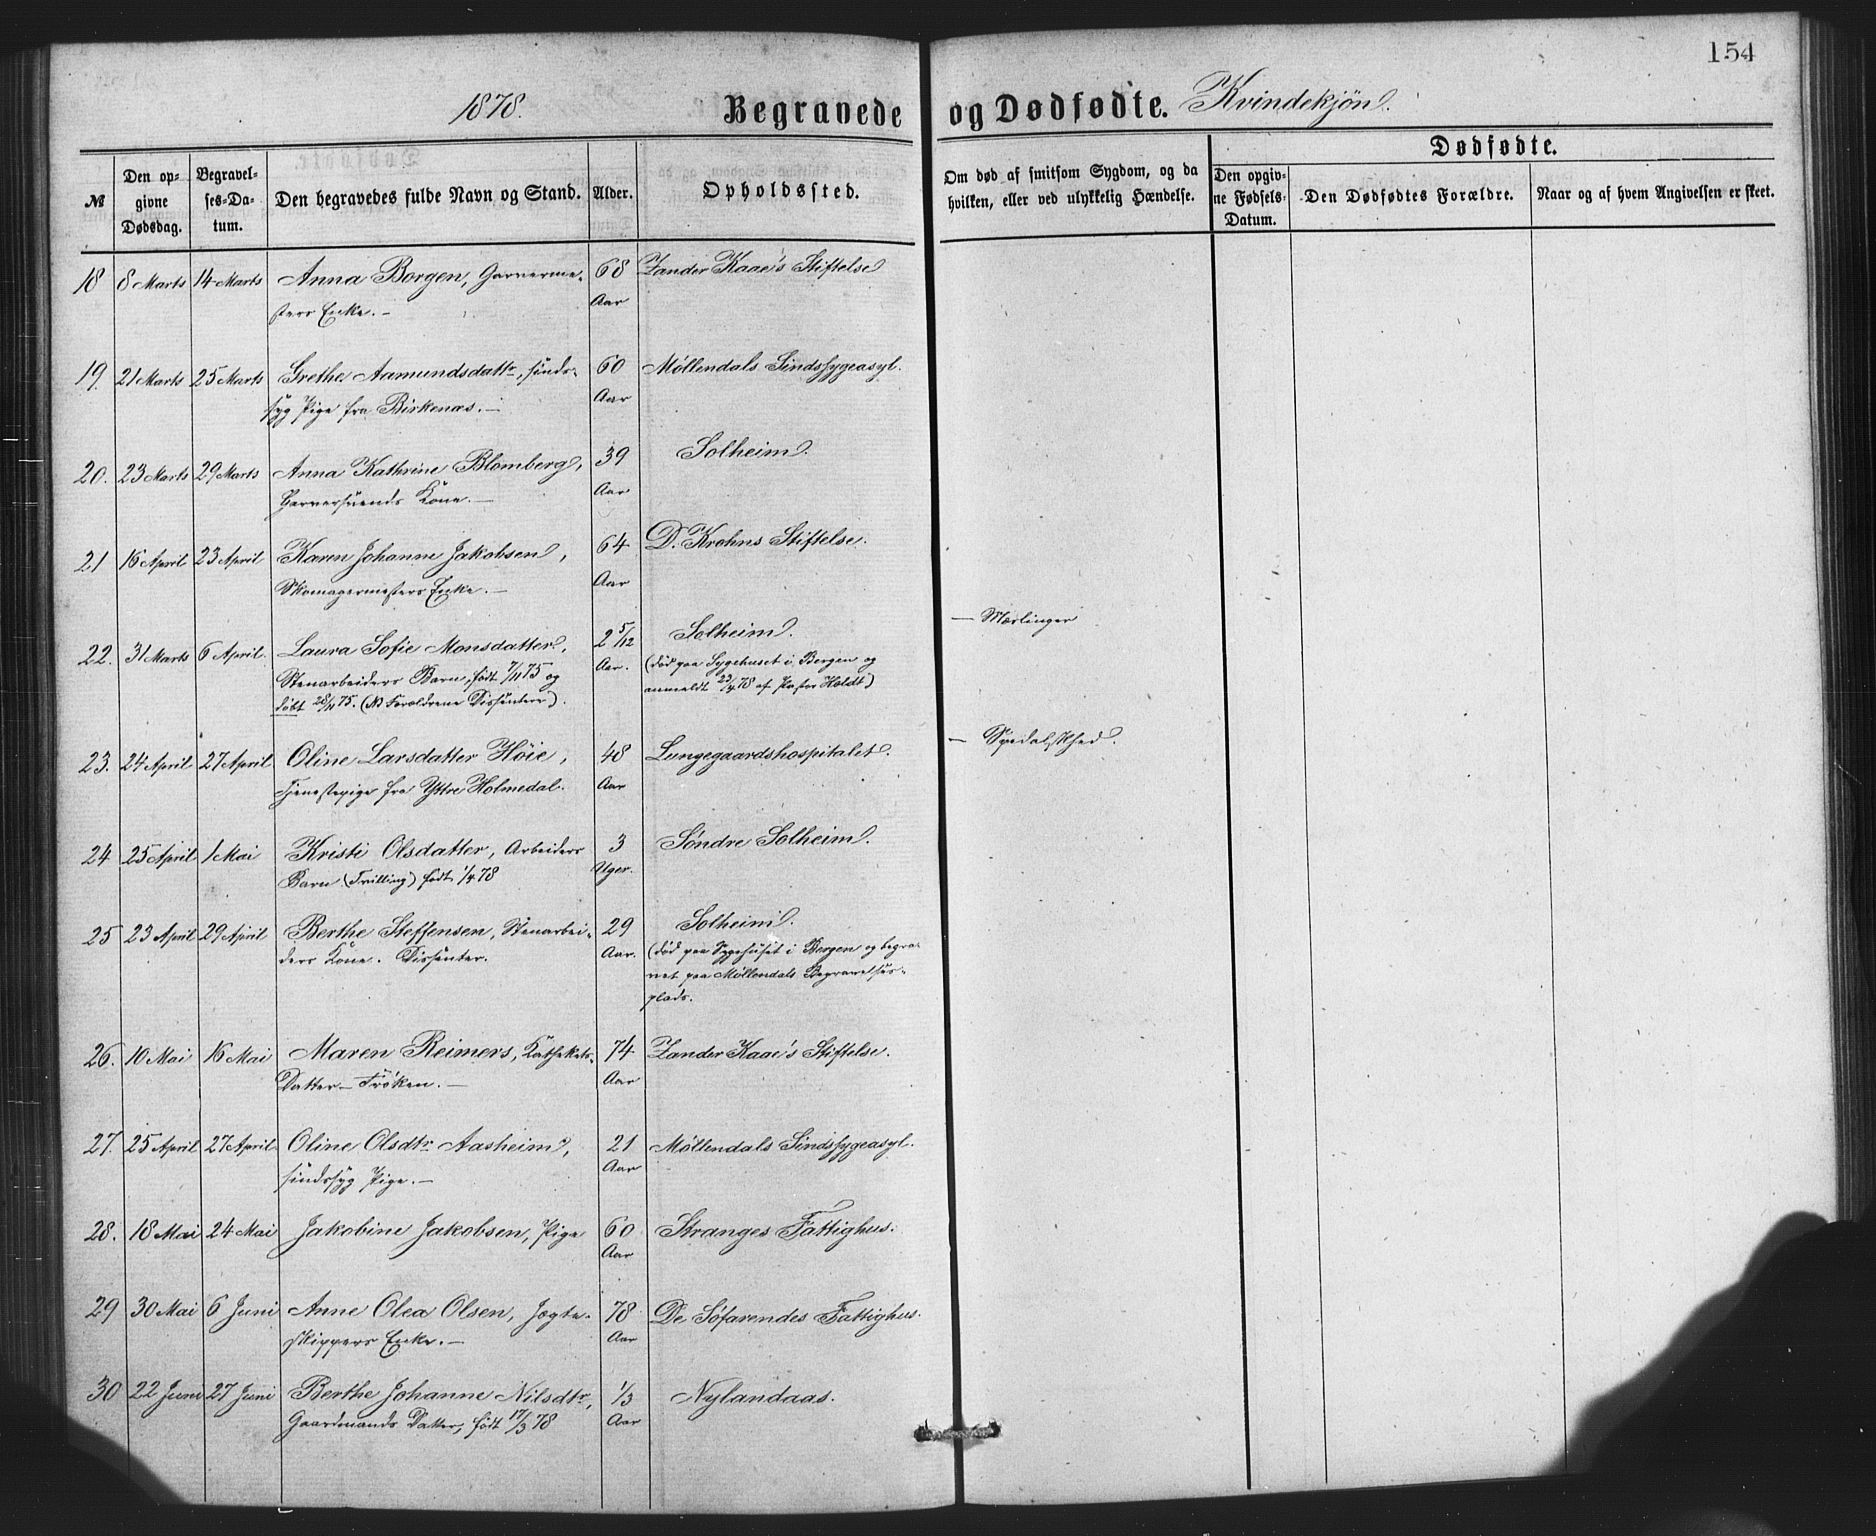 154
1878. Begravede og Dødfødte. Kvindekjøn.
№ Den opgivne Dødsdag. Begravelses-Datum. Den begravedes fulde Navn og Stand. Alder. Opholdssted. Om død af smitsom Sygdom, og da hvilken, eller ved ulykkelig Hændelse. Dødfødte. Den opgivne Fødsels-Datum. Den Dødfødtes Forældre. Naar og af hvem Angivelsen er skeet.
18 8 Marts 14 Marts Anna Borgen, Garverme- 68 Zander Kaae's Stiftelse
sters Enke. — Aar
19. 21 Marts 25 Marts Grethe Aamundsdattr, sinds- 60 Møllendals Sindssygeasyl.
syg Pige fra Birkenæs. — Aar
20. 23 Marts 29 Marts Anna Kathrine Blomberg, 39 Solheim.
Garversvends Kone. — Aar
21 16 April 23 April Karen Johanne Jakobsen, 64 D. Krohns Stiftelse.
Skomagermesters Enke. — Aar
22. 31 Marts 6 April. Laura Sofie Monsdatter, 2 5/12 Solheim. — Mæslinger
Stenarbeiders Barn, født 7/11 75 og Aar. (død paa Sygehuset i Bergen og
døbt 28/11 75. (NB Forældrene Dissentere). anmeldt 23/4 78 af Pastor Holdt)
23. 24 April 27 April Oline Larsdatter Høie, 48 Lungegaardshospitalet. — Spedalskhed.
Tjenestepige fra Yttre Holmedal. Aar
24 25 April 1 Mai Kristi Olsdatter, Arbeiders 3 Søndre Solheim.
Barn (Tvilling) født 1/4 78 Uger.
25 23 April 29 April Berthe Steffensen, Stenarbei- 29 Solheim.
ders Kone. Dissenter. Aar. (død paa Sygehuset i Bergen og begra-
vet paa Møllendals Begravelses-
plads.
26. 10 Mai 16 Mai Maren Reimers, Kathekets- 74 Zander Kaae's Stiftelse.
Datter — Frøken. — Aar
27. 25 April 27 April Oline Olsdtr Aasheim, 21 Møllendals Sindssygeasyl.
sindssyg Pige. — Aar
28. 18 Mai 24 Mai Jakobine Jakobsen, Pige 60 Stranges Fattighus.
Aar
29 30 Mai 6 Juni Anne Olea Olsen, Jægte- 78 De Søfarendes Fattighus.
skippers Enke. — Aar
30 22 Juni 27 Juni Berthe Johanne Nilsdtr, 1/3 Nylandaas.
Gaardmands Datter, født 17/3 78 Aar